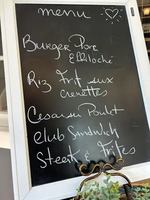 menu
Burger Porc
Effiloché
Riz Frit aux
crevettes
Cesar Poulet
club Sandwich
Steak & Frites